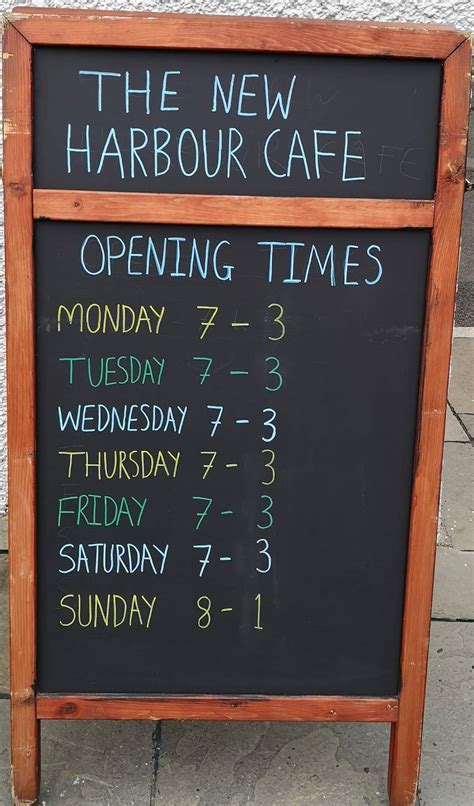 THE NEW
HARBOUR CAFE
OPENING TIMES
MONDAY 7 - 3
TUESDAY 7 - 3
WEDNESDAY 7 - 3
THURSDAY 7 - 3
FRIDAY 7 - 3
SATURDAY 7 - 3
SUNDAY 8 - 1